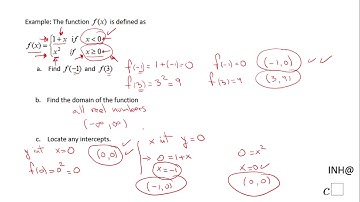 Example: The function f(x) is defined as
f(x) = { 1 + x if x < 0
x² if x ≥ 0
a. Find f(-1) and f(3)
f(-1) = 1+(-1) = 0
f(3) = 3² = 9
f(-1) = 0 (-1,0)
f(3) = 9 (3,9)
b. Find the domain of the function
all real numbers
(-∞,∞)
c. Locate any intercepts.
y int x=0 (0,0)
f(0) = 0² = 0
x int y=0
0 = 1+x
x = -1
(-1,0)
0 = x²
x = 0
(0,0)
INH@